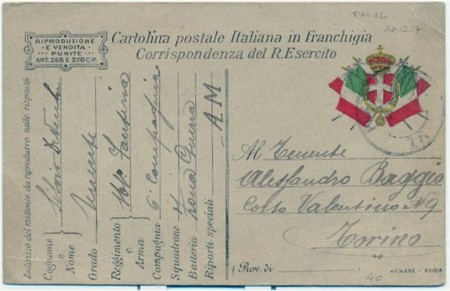 P.M. 36
12.12.17
RIPRODUZIONE
E VENDITA
PUNITE
ART. 268 E 270 C.P.
Cartolina postale Italiana in franchigia
Corrispondenza del R. Esercito
Indirizzo del mittente da riprodurre nelle risposte
Cognome e Nome Silvio
Grado Tenente
Reggimento e Arma Fanteria
Compagnia 6ª Compagnia
Squadrone
Batteria Zona Guerra
Riparti speciali A M
Al Tenente
Alessandro Baggio
Corso Valentino 9
Torino
(Prov. di
ARMANI - ROMA
40